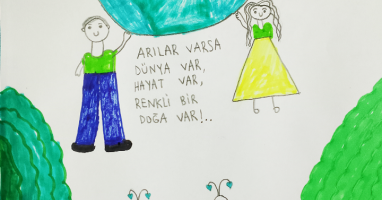 ARILAR VARSA
DÜNYA VAR,
HAYAT VAR,
RENKLİ BİR
DOĞA VAR!..